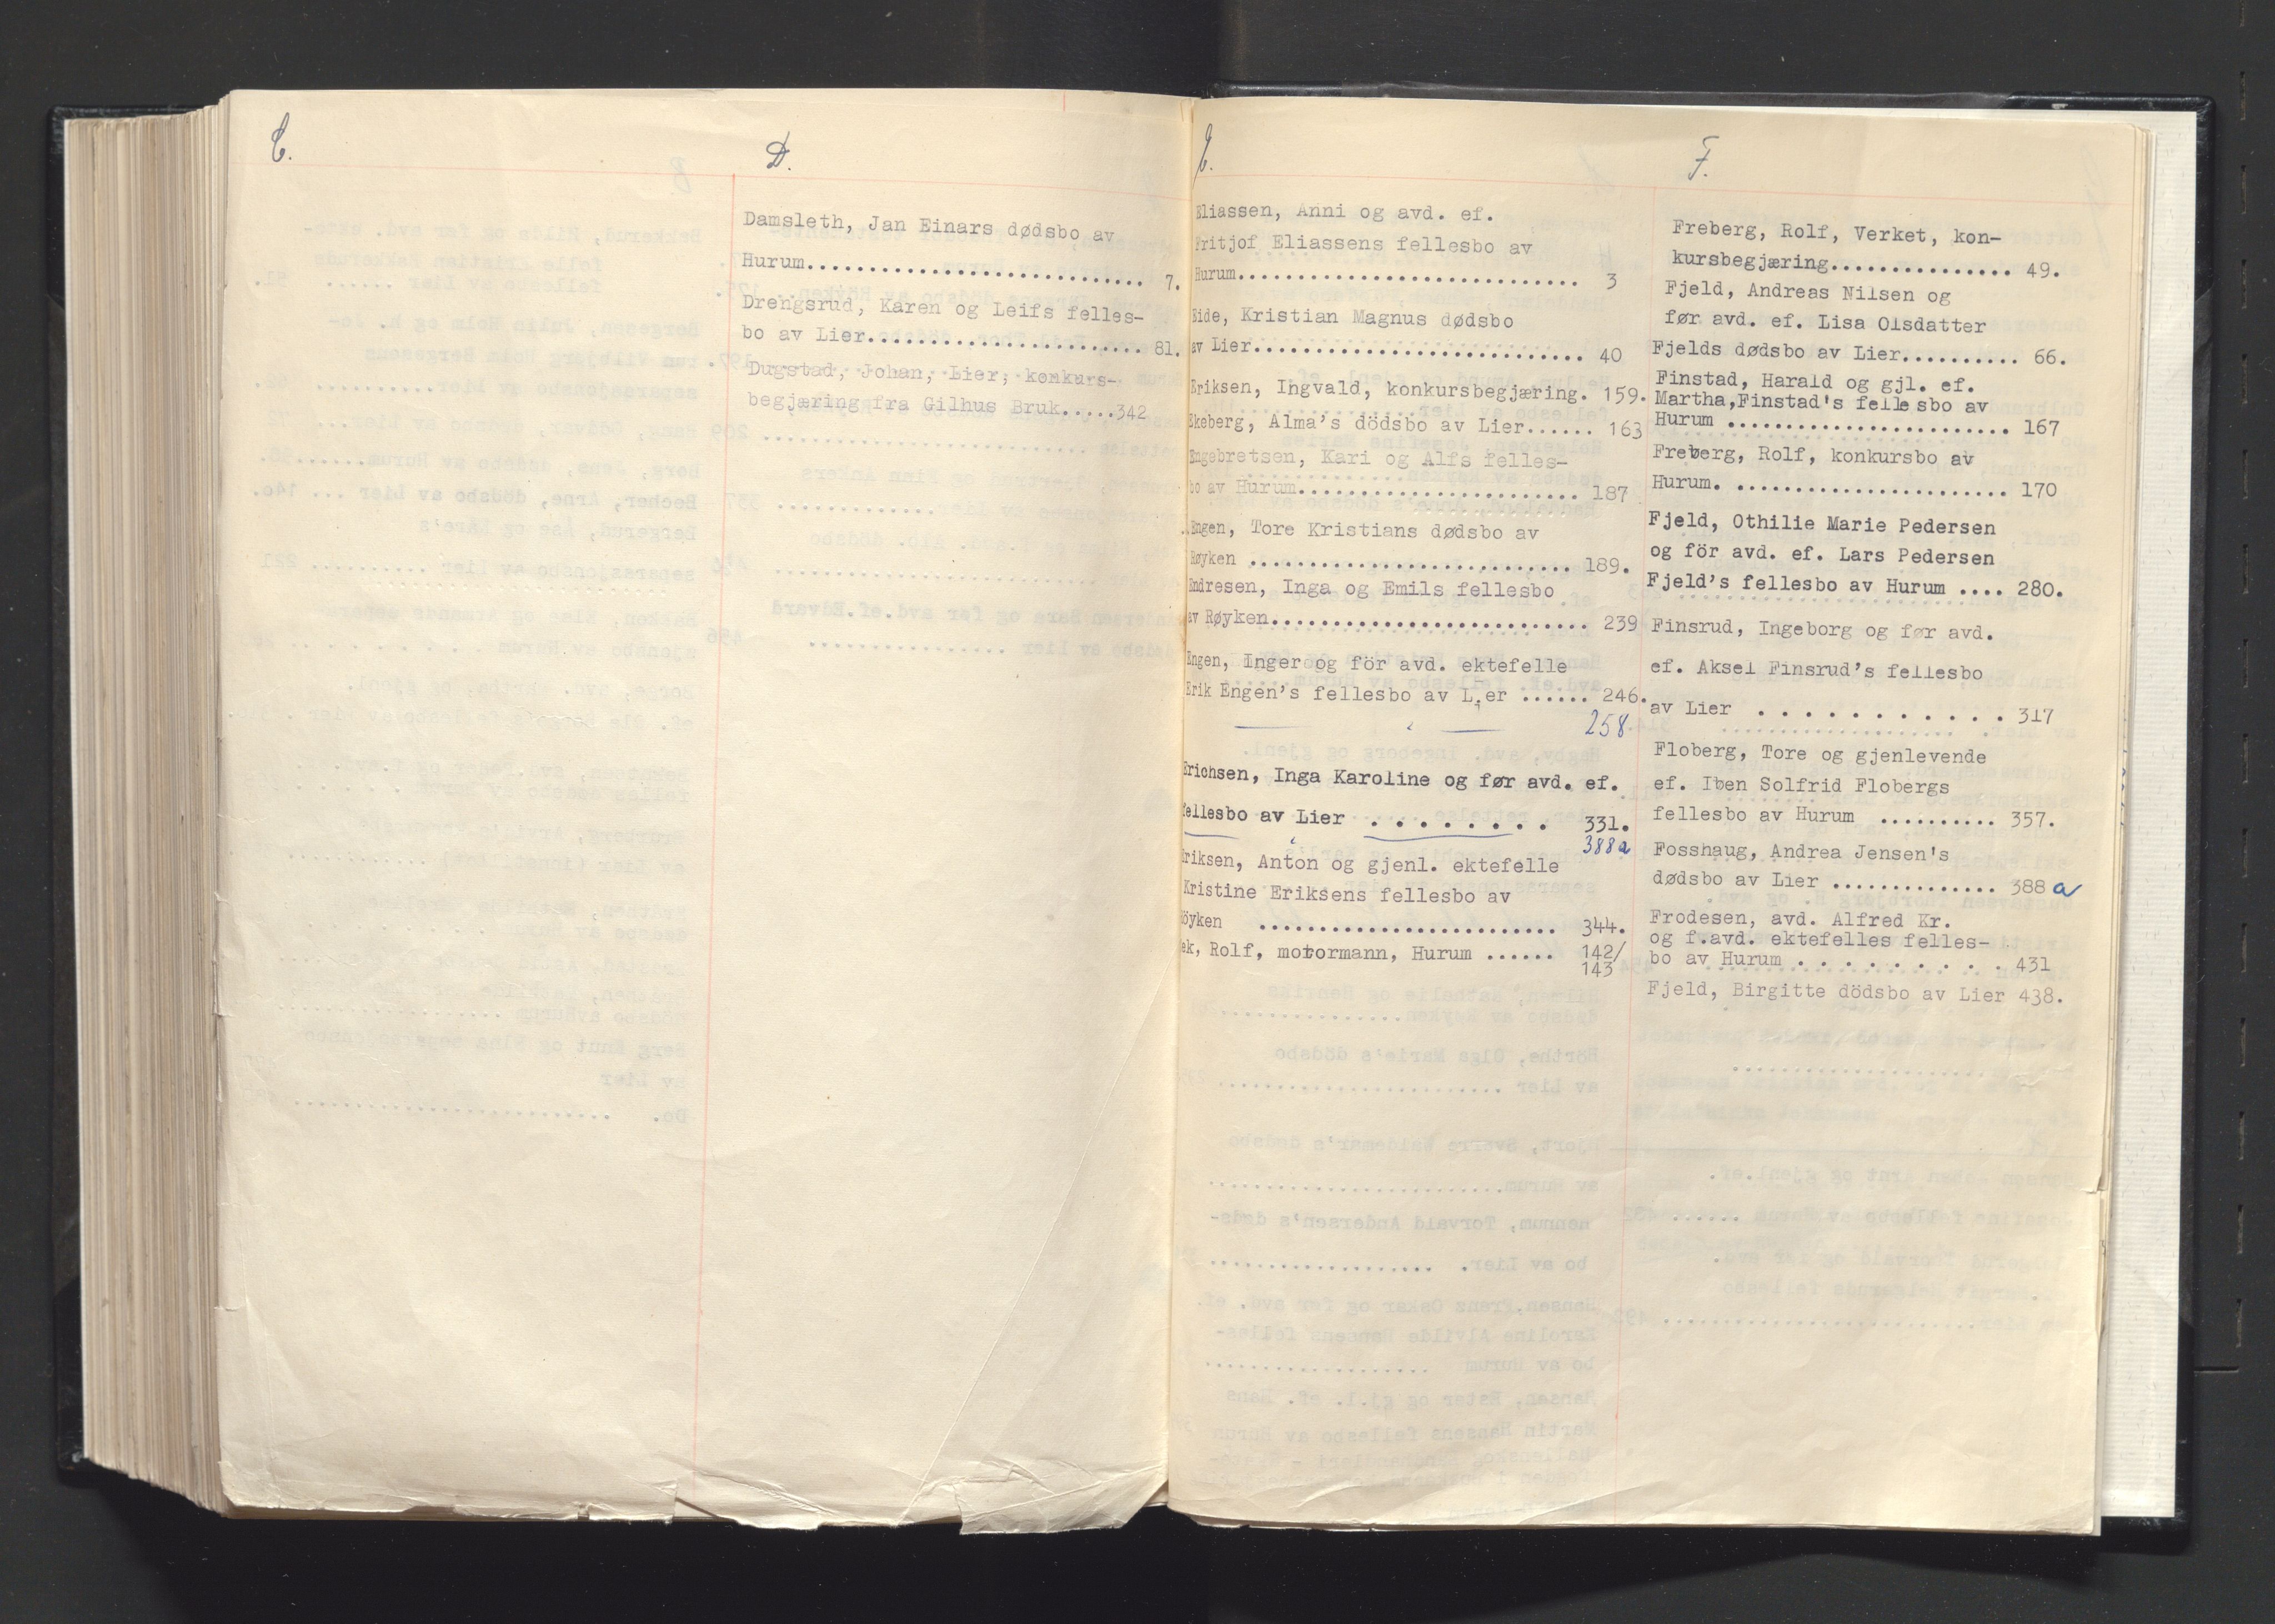 C.
D.
Damsleth, Jan Einars dødsbo av
Hurum........................... 7.
Drengsrud, Karen og Leifs felles-
bo av Lier...................... 81.
Dugstad, Johan, Lier, konkurs-
begjæring fra Gilhus Bruk.....342
E.
Eliassen, Anni og avd. ef.
Fritjof Eliassens fellesbo av
Hurum............................ 3
Eide, Kristian Magnus dødsbo
av Lier........................... 40
Eriksen, Ingvald, konkursbegjæring. 159.
Ekeberg, Alma's dödsbo av Lier...... 163
Engebretsen, Kari og Alfs felles-
bo av Hurum....................... 187
Engen, Tore Kristians dødsbo av
Røyken .......................... 189.
Endresen, Inga og Emils fellesbo
av Røyken.......................... 239
Engen, Inger og för avd. ektefelle
Erik Engen's fellesbo av Lier ...... 246.
258.
Erichsen, Inga Karoline og før avd. ef.
fellesbo av Lier . . . . . . . . 331.
388a
Eriksen, Anton og gjenl. ektefelle
Kristine Eriksens fellesbo av
Röyken ........................ 344.
Ek, Rolf, motormann, Hurum ...... 142/
143
F.
Freberg, Rolf, Verket, kon-
kursbegjæring............... 49.
Fjeld, Andreas Nilsen og
før avd. ef. Lisa Olsdatter
Fjelds dødsbo av Lier.......... 66.
Finstad, Harald og gjl. ef.
Martha,Finstad's fellesbo av
Hurum ....................... 167
Freberg, Rolf, konkursbo av
Hurum. ...................... 170
Fjeld, Othilie Marie Pedersen
og för avd. ef. Lars Pedersen
Fjeld's fellesbo av Hurum .... 280.
Finsrud, Ingeborg og før avd.
ef. Aksel Finsrud's fellesbo
av Lier . . . . . . . . . . . 317
Floberg, Tore og gjenlevende
ef. Iben Solfrid Flobergs
fellesbo av Hurum .......... 357.
Fosshaug, Andrea Jensen's
dødsbo av Lier .............. 388 a
Frodesen, avd. Alfred Kr.
og f.avd. ektefelles felles-
bo av Hurum . . . . . . . . . 431
Fjeld, Birgitte dödsbo av Lier 438.